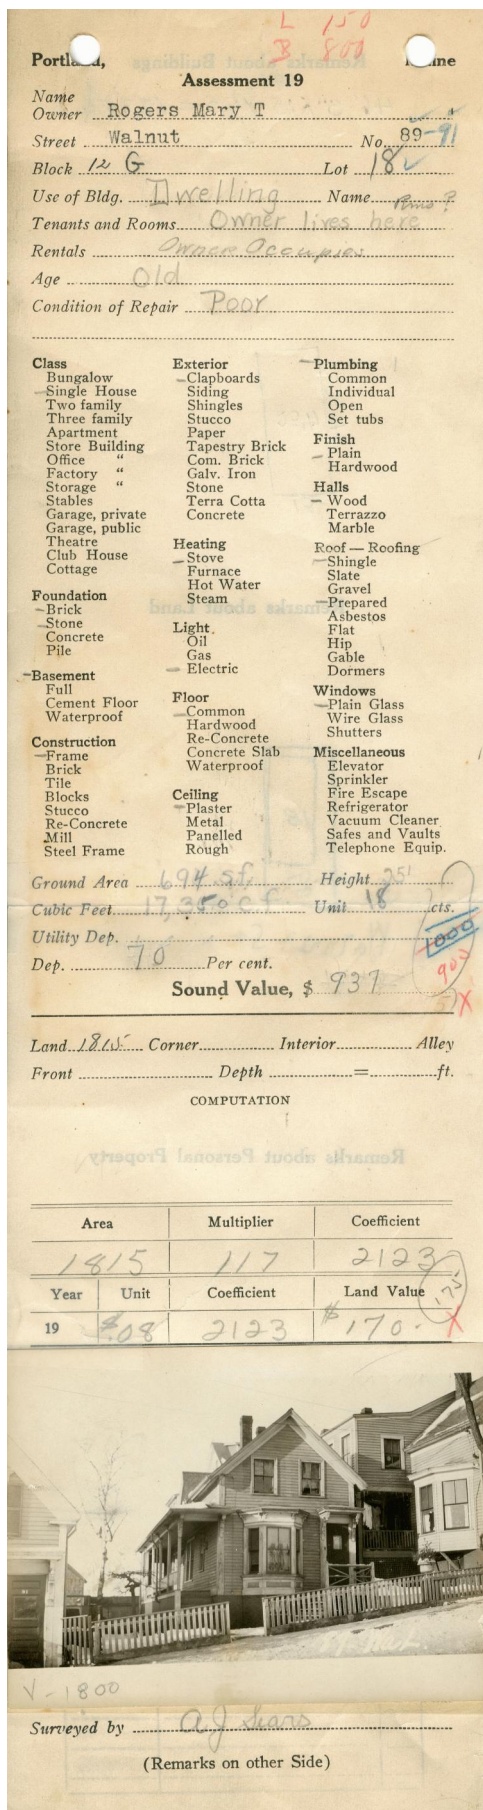 L 150
B 800
Portland, Maine
Assessment 19
Name
Owner Rogers Mary T
Street Walnut No. 89-91
Block 12 G Lot 18
Use of Bldg. Dwelling Name Rms ?
Tenants and Rooms Owner lives here
Rentals Owner Occupies
Age Old
Condition of Repair Poor
Class
Bungalow
Single House
Two family
Three family
Apartment
Store Building
Office "
Factory "
Storage "
Stables
Garage, private
Garage, public
Theatre
Club House
Cottage
Foundation
Brick
Stone
Concrete
Pile
Basement
Full
Cement Floor
Waterproof
Construction
Frame
Brick
Tile
Blocks
Stucco
Re-Concrete
Mill
Steel Frame
Exterior
Clapboards
Siding
Shingles
Stucco
Paper
Tapestry Brick
Com. Brick
Galv. Iron
Stone
Terra Cotta
Concrete
Heating
Stove
Furnace
Hot Water
Steam
Light
Oil
Gas
Electric
Floor
Common
Hardwood
Re-Concrete
Concrete Slab
Waterproof
Ceiling
Plaster
Metal
Panelled
Rough
Plumbing
Common
Individual
Open
Set tubs
Finish
Plain
Hardwood
Halls
Wood
Terrazzo
Marble
Roof — Roofing
Shingle
Slate
Gravel
Prepared
Asbestos
Flat
Hip
Gable
Dormers
Windows
Plain Glass
Wire Glass
Shutters
Miscellaneous
Elevator
Sprinkler
Fire Escape
Refrigerator
Vacuum Cleaner
Safes and Vaults
Telephone Equip.
Ground Area 694 s.f. Height 25'
Cubic Feet 17,350 c.f. Unit 18 cts.
1000
Utility Dep.
900
Dep. 70 Per cent.
Sound Value, $ 937
X
Land 1815 Corner Interior Alley
Front Depth = ft.
COMPUTATION
Area Multiplier Coefficient
1815 117 2123
Year Unit Coefficient Land Value 175
19 $.08 2123 $170.- X
V-1800
Surveyed by A J Sears
(Remarks on other Side)